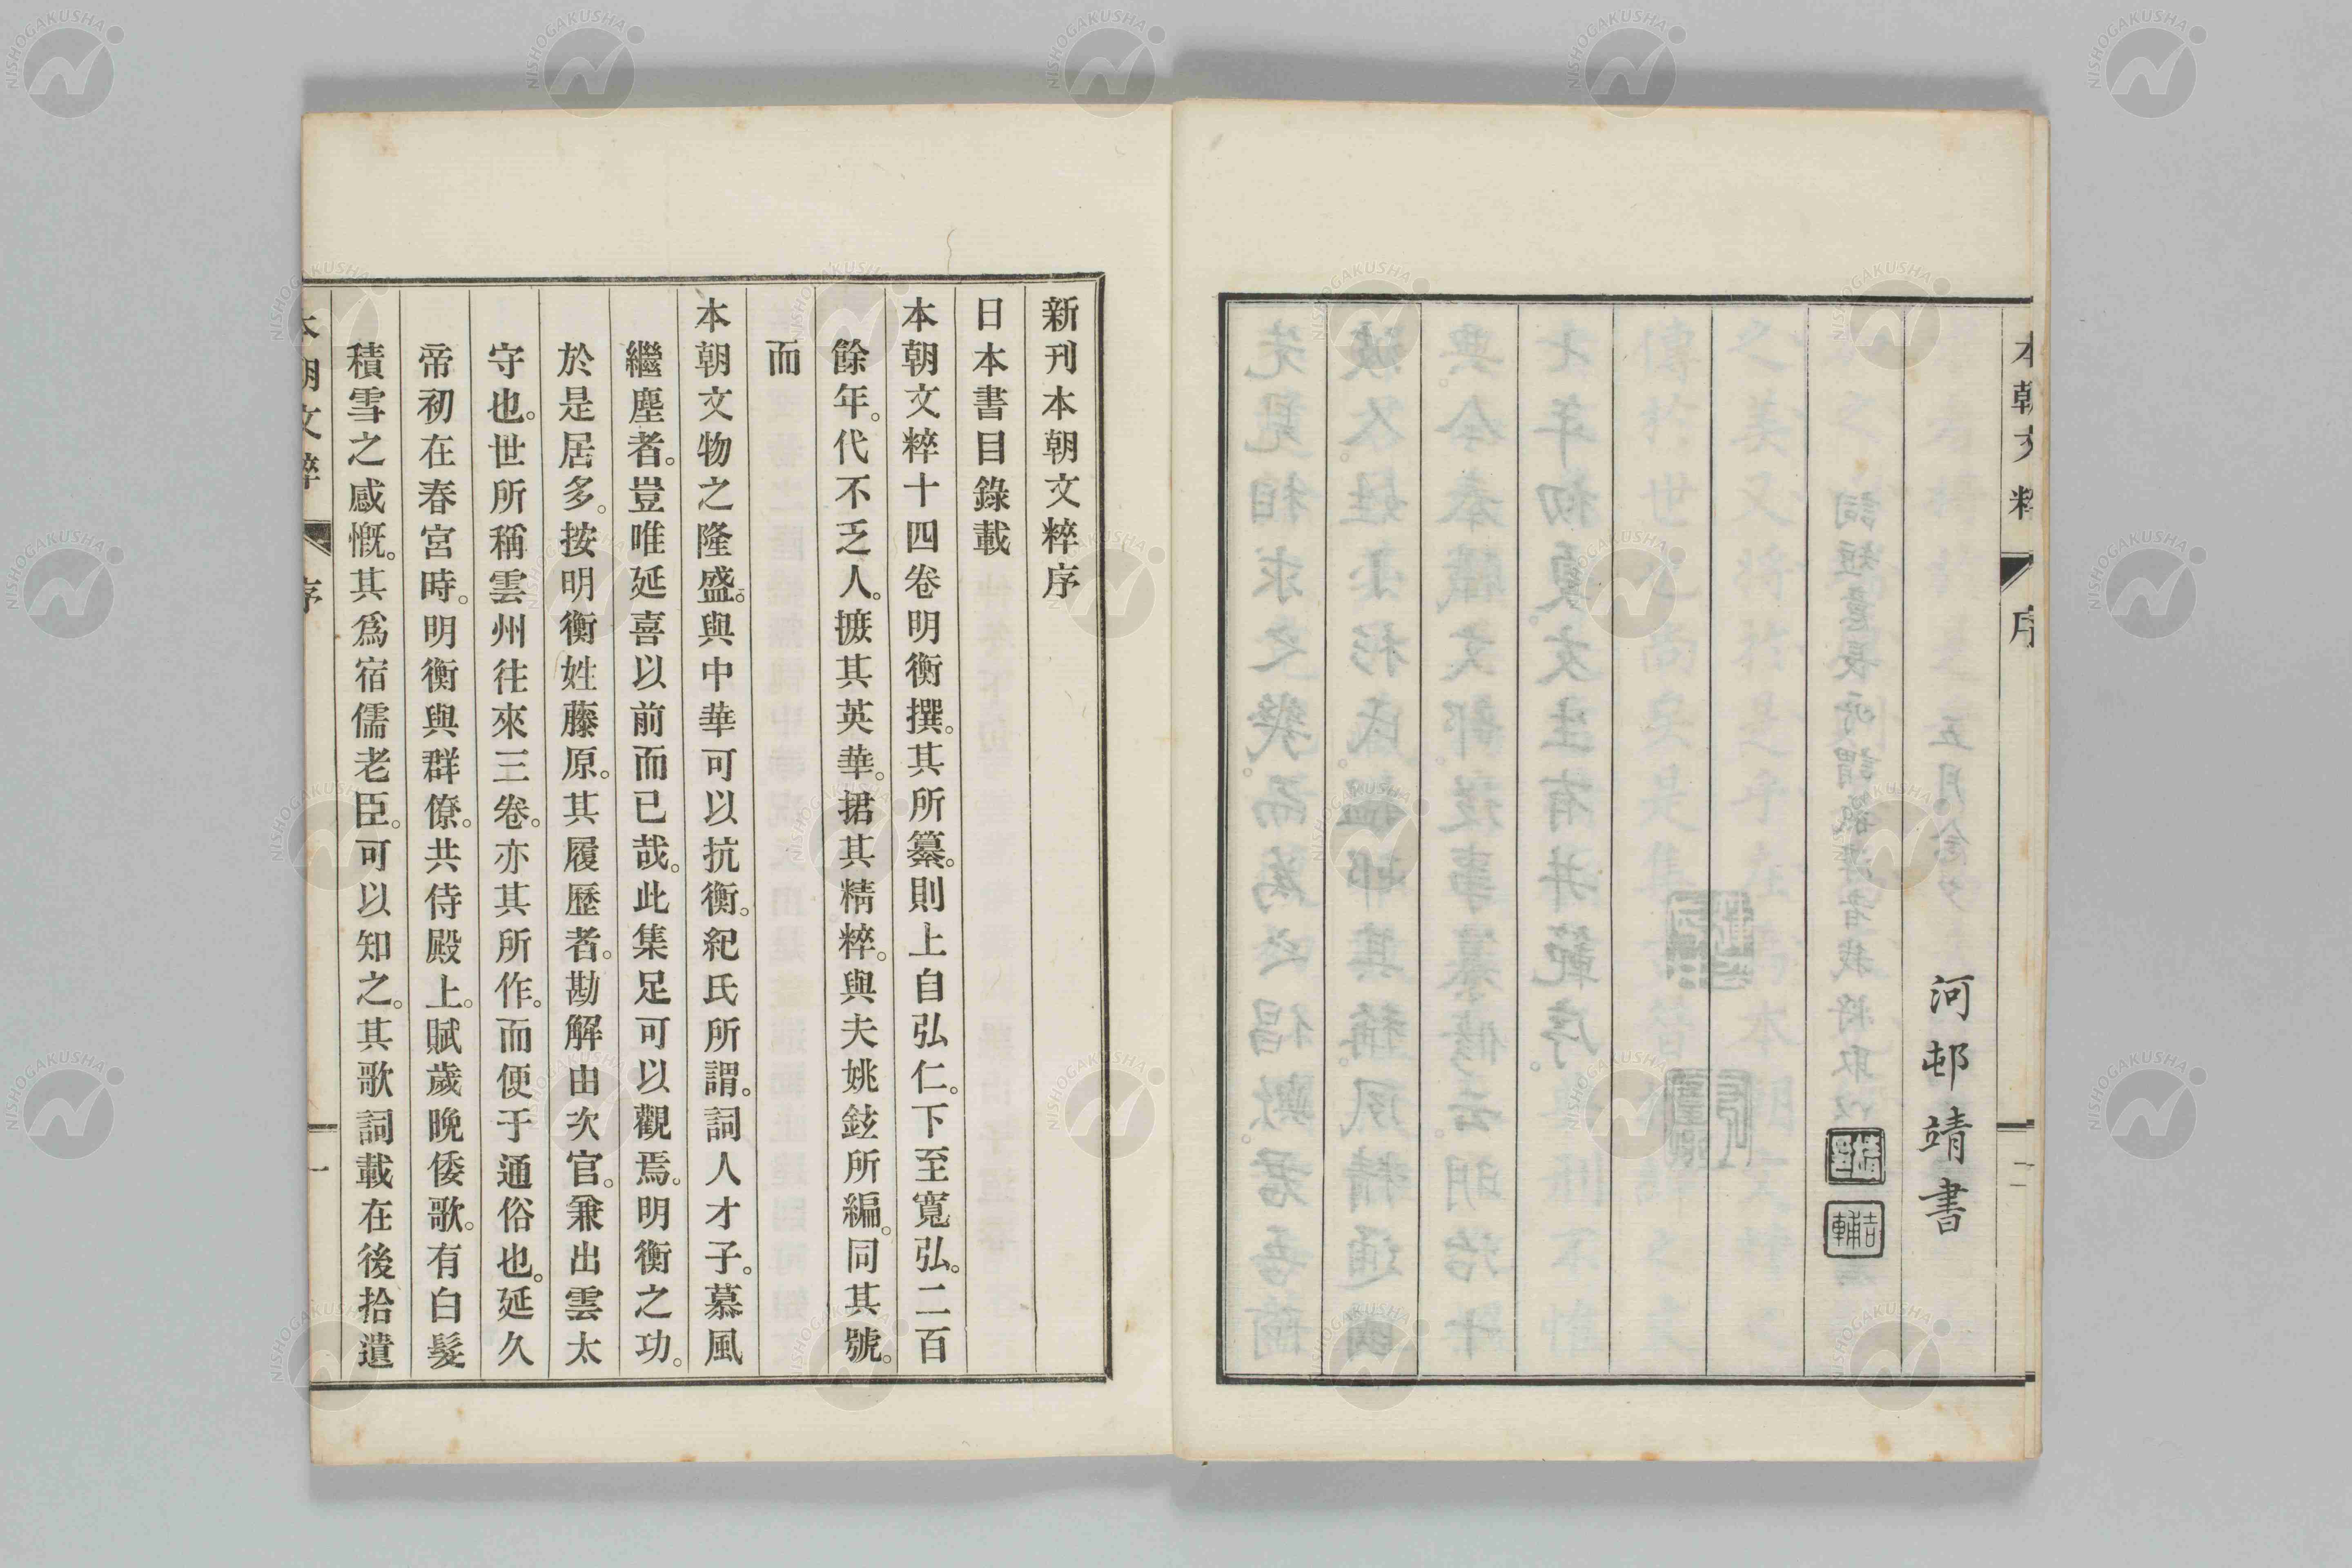 河邨靖書
新刊本朝文粹序
日本書目錄載
本朝文粹十四卷明衡撰。其所纂。則上自弘仁。下至寬弘。二百
餘年。代不乏人。摭其英華。捃其精粹。與夫姚鉉所編。同其號。
而
本朝文物之隆盛。與中華可以抗衡。紀氏所謂。詞人才子。慕風
繼塵者。豈唯延喜以前而已哉。此集足可以觀焉。明衡之功。
於是居多。按明衡姓藤原。其履歷者。勘解由次官。兼出雲太
守也。世所稱雲州往來三卷。亦其所作。而便于通俗也。延久
帝初在春宮時。明衡與群僚。共侍殿上。賦歲晚倭歌。有白髮
積雪之感慨。其爲宿儒老臣。可以知之。其歌詞載在後拾遺
本朝文粹 序 一
NISHOGAKUSHA